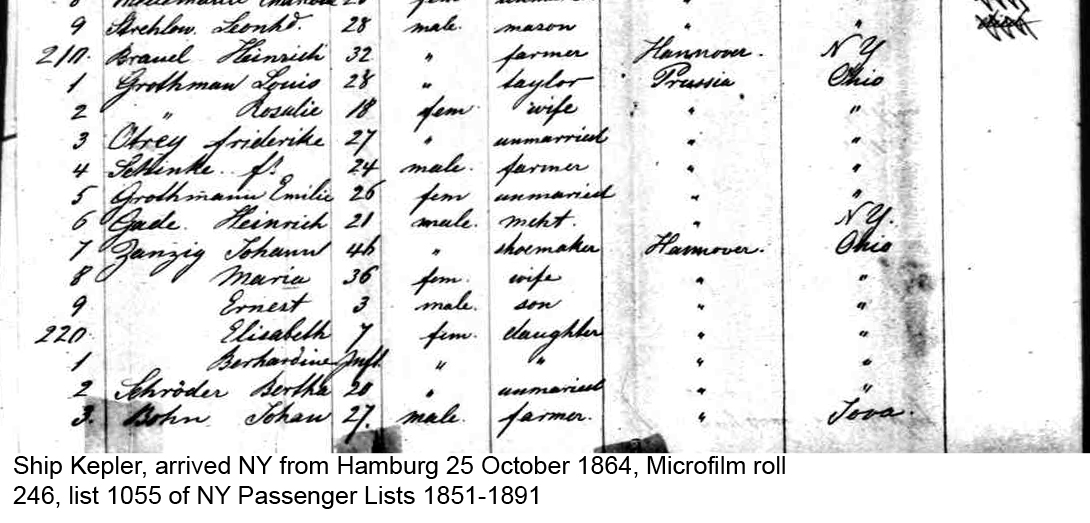 9 Strehlow Leonhd. 28 male. mason " "
210. Brauel Heinrich 32 " farmer Hannover. NY
1 Grothman Louis 28 " taylor Prussia Ohio
2 " Rosalie 18 fem wife " "
3 Otrey friderike 27 " unmarried " "
4 Schinke fs. 24 male. farmer " "
5 Grothmann Emilie 26 fem unmaried " "
6 Gade. Heinrich 21 male. mcht. " NY.
7 Zanzig Johann 46 " shoemaker Hannover. Ohio
8 Maria 36 fem. wife " "
9 Ernest 3 male. son " "
220. Elisabeth 7 fem. daughter " "
1 Berhardine Inft. " " " "
2 Schröder Bertha 20 " unmaried " "
3. Bohn Johan 27. male. farmer. " Iova.
Ship Kepler, arrived NY from Hamburg 25 October 1864, Microfilm roll
246, list 1055 of NY Passenger Lists 1851-1891